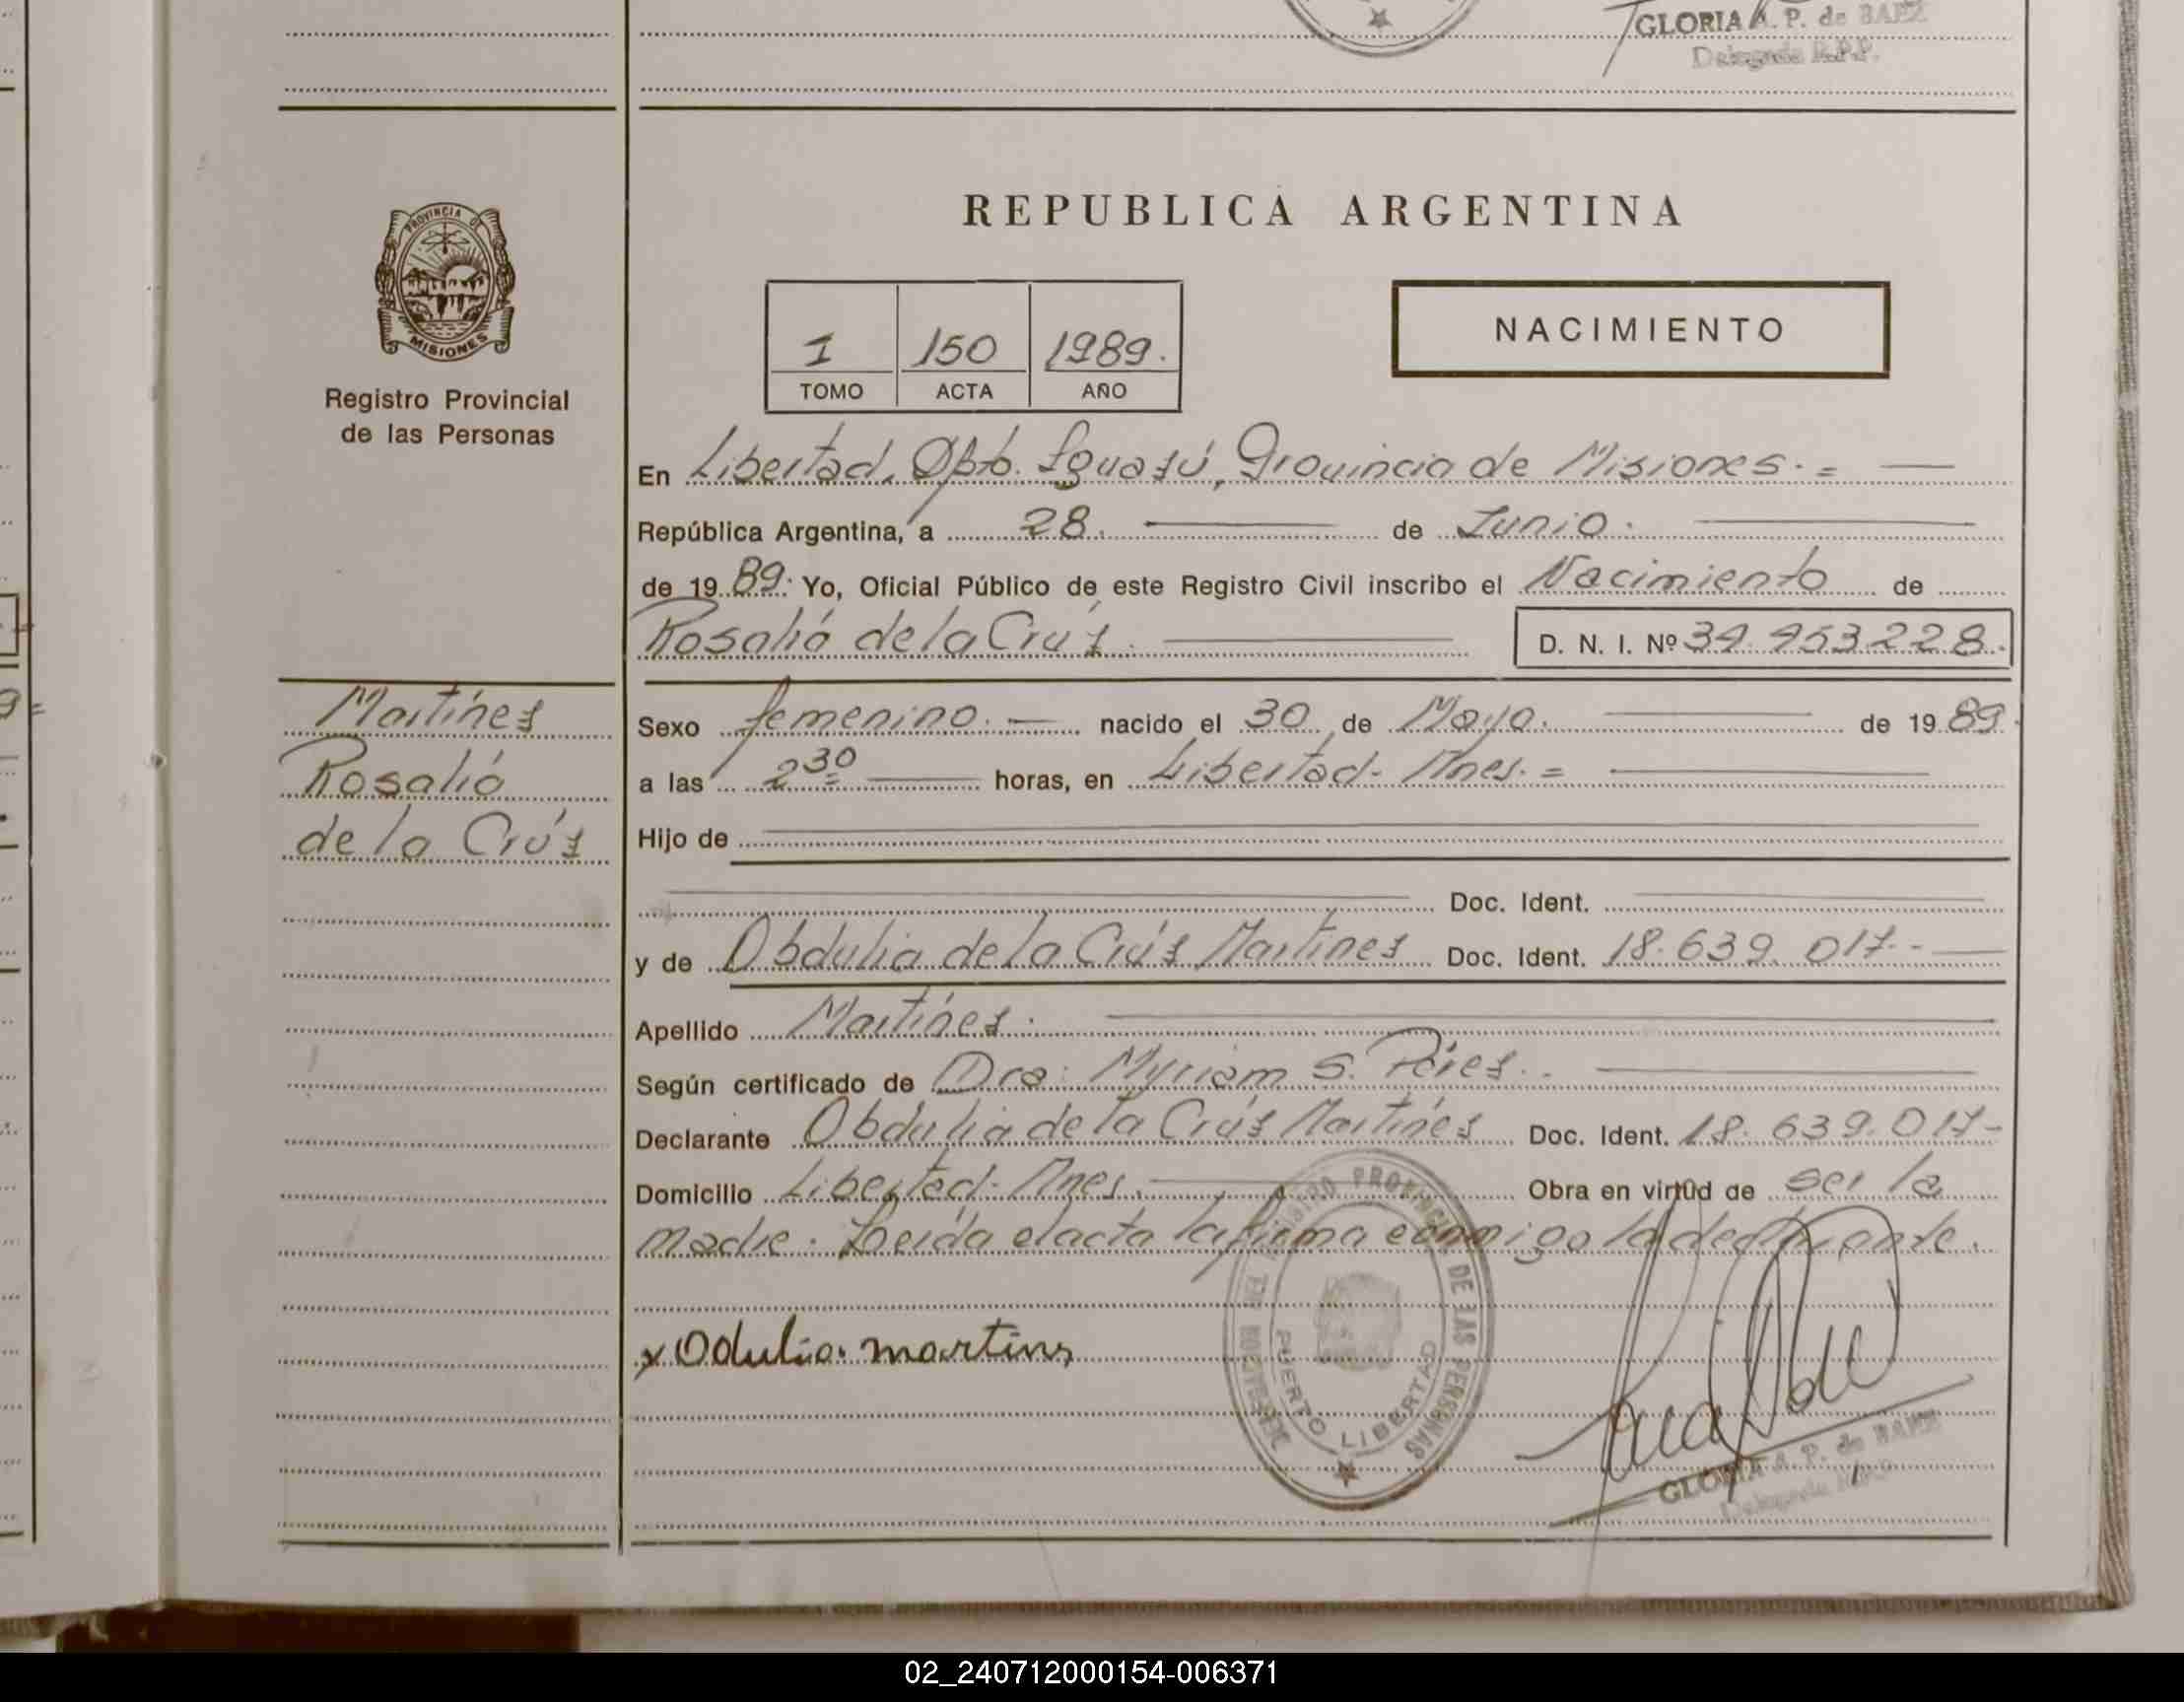 GLORIA A. P. de BAEZ
Delegada R.P.P.
PROVINCIA DE
MISIONES
Registro Provincial
de las Personas
REPUBLICA ARGENTINA
1 150 1989.
TOMO ACTA AÑO
NACIMIENTO
En Libertad, Dpto. Iguazú, Provincia de Misiones. =
República Argentina, a 28. de Junio.
de 19 89. Yo, Oficial Público de este Registro Civil inscribo el Nacimiento de
Rosalía de la Crúz. D. N. I. Nº 34.453.228.
Martínez
Rosalía
de la Crúz
Sexo femenino. nacido el 30 de Mayo. de 19 89.
a las 2 30 horas, en Libertad- Mnes. =
Hijo de
Doc. Ident.
y de Obdulia de la Crúz Martínez Doc. Ident. 18.639.017.-
Apellido Martínez.
Según certificado de Dra: Myriam S. Pérez.
Declarante Obdulia de la Crúz Martínez Doc. Ident. 18.639.017-
Domicilio Libertad- Mnes. Obra en virtud de ser la
madre. Leída el acta la firma conmigo la declarante.
x Odulia martins
REGISTRO PROVINCIAL DE LAS PERSONAS
PUERTO LIBERTAD
GLORIA A. P. de BAEZ
Delegada R.P.P.
02_240712000154-006371